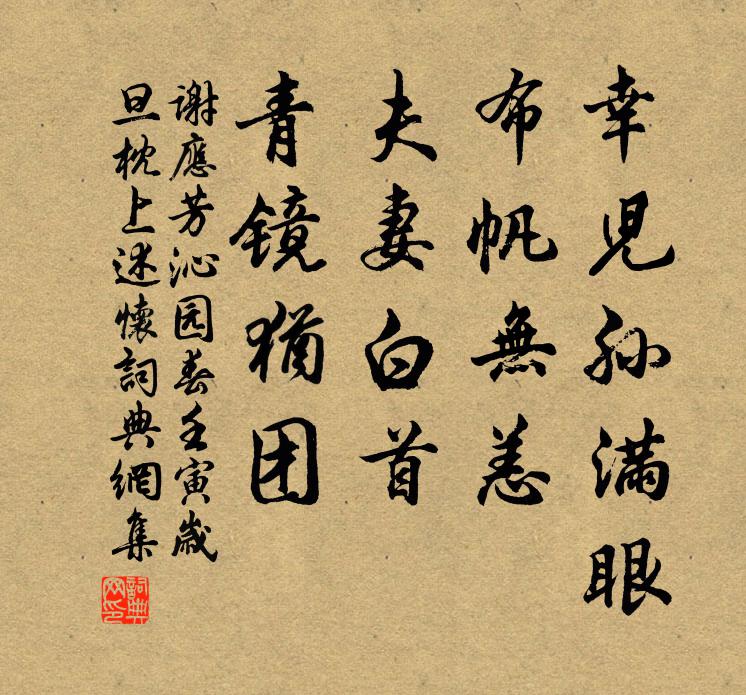 幸児孫满眼
布帆無恙
夫妻白首
青镜猶团
謝應芳沁园春壬寅歲
旦枕上述懷詞典網集
詞典网印